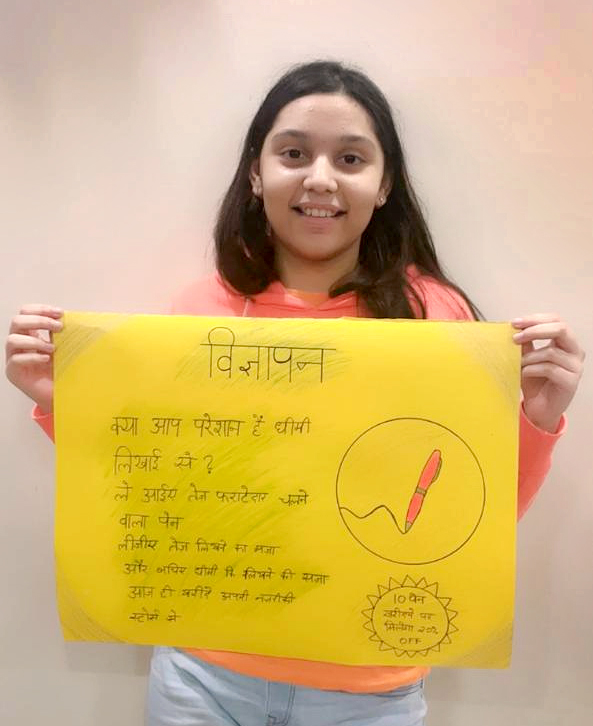 विज्ञापन
क्या आप परेशान हैं धीमी
लिखाई से ?
ले आईए तेज फराटेदार चलने
वाला पेन
लीजीए तेज लिखने का मजा
और धीमी लिखने की सजा
आज ही खरीदे अपनी नजदीकी
स्टोर्स से
10 पेन
खरीदने पर
मिलेगा 20%
OFF